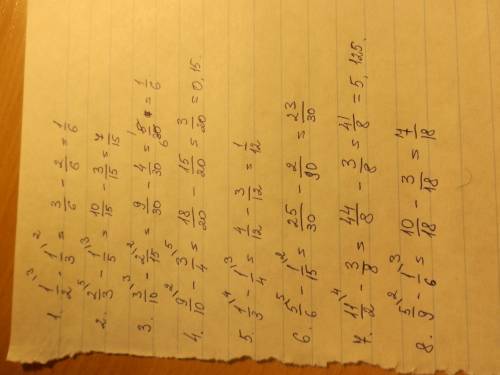 1. 1/2 \3 - 1/3 \2 = 3/6 - 2/6 = 1/6
2. 2/3 \5 - 1/5 \3 = 10/15 - 3/15 = 7/15
3. 3/10 \3 - 2/15 \2 = 9/30 - 4/30 = 5/30 = 1/6
4. 9/10 \2 - 3/4 \5 = 18/20 - 15/20 = 3/20 = 0,15.
5. 1/3 \4 - 1/4 \3 = 4/12 - 3/12 = 1/12
6. 5/6 \5 - 1/15 \2 = 25/30 - 2/30 = 23/30
7. 11/2 \4 - 3/8 = 44/8 - 3/8 = 41/8 = 5,125.
8. 5/9 \2 - 1/6 \3 = 10/18 - 3/18 = 17/18